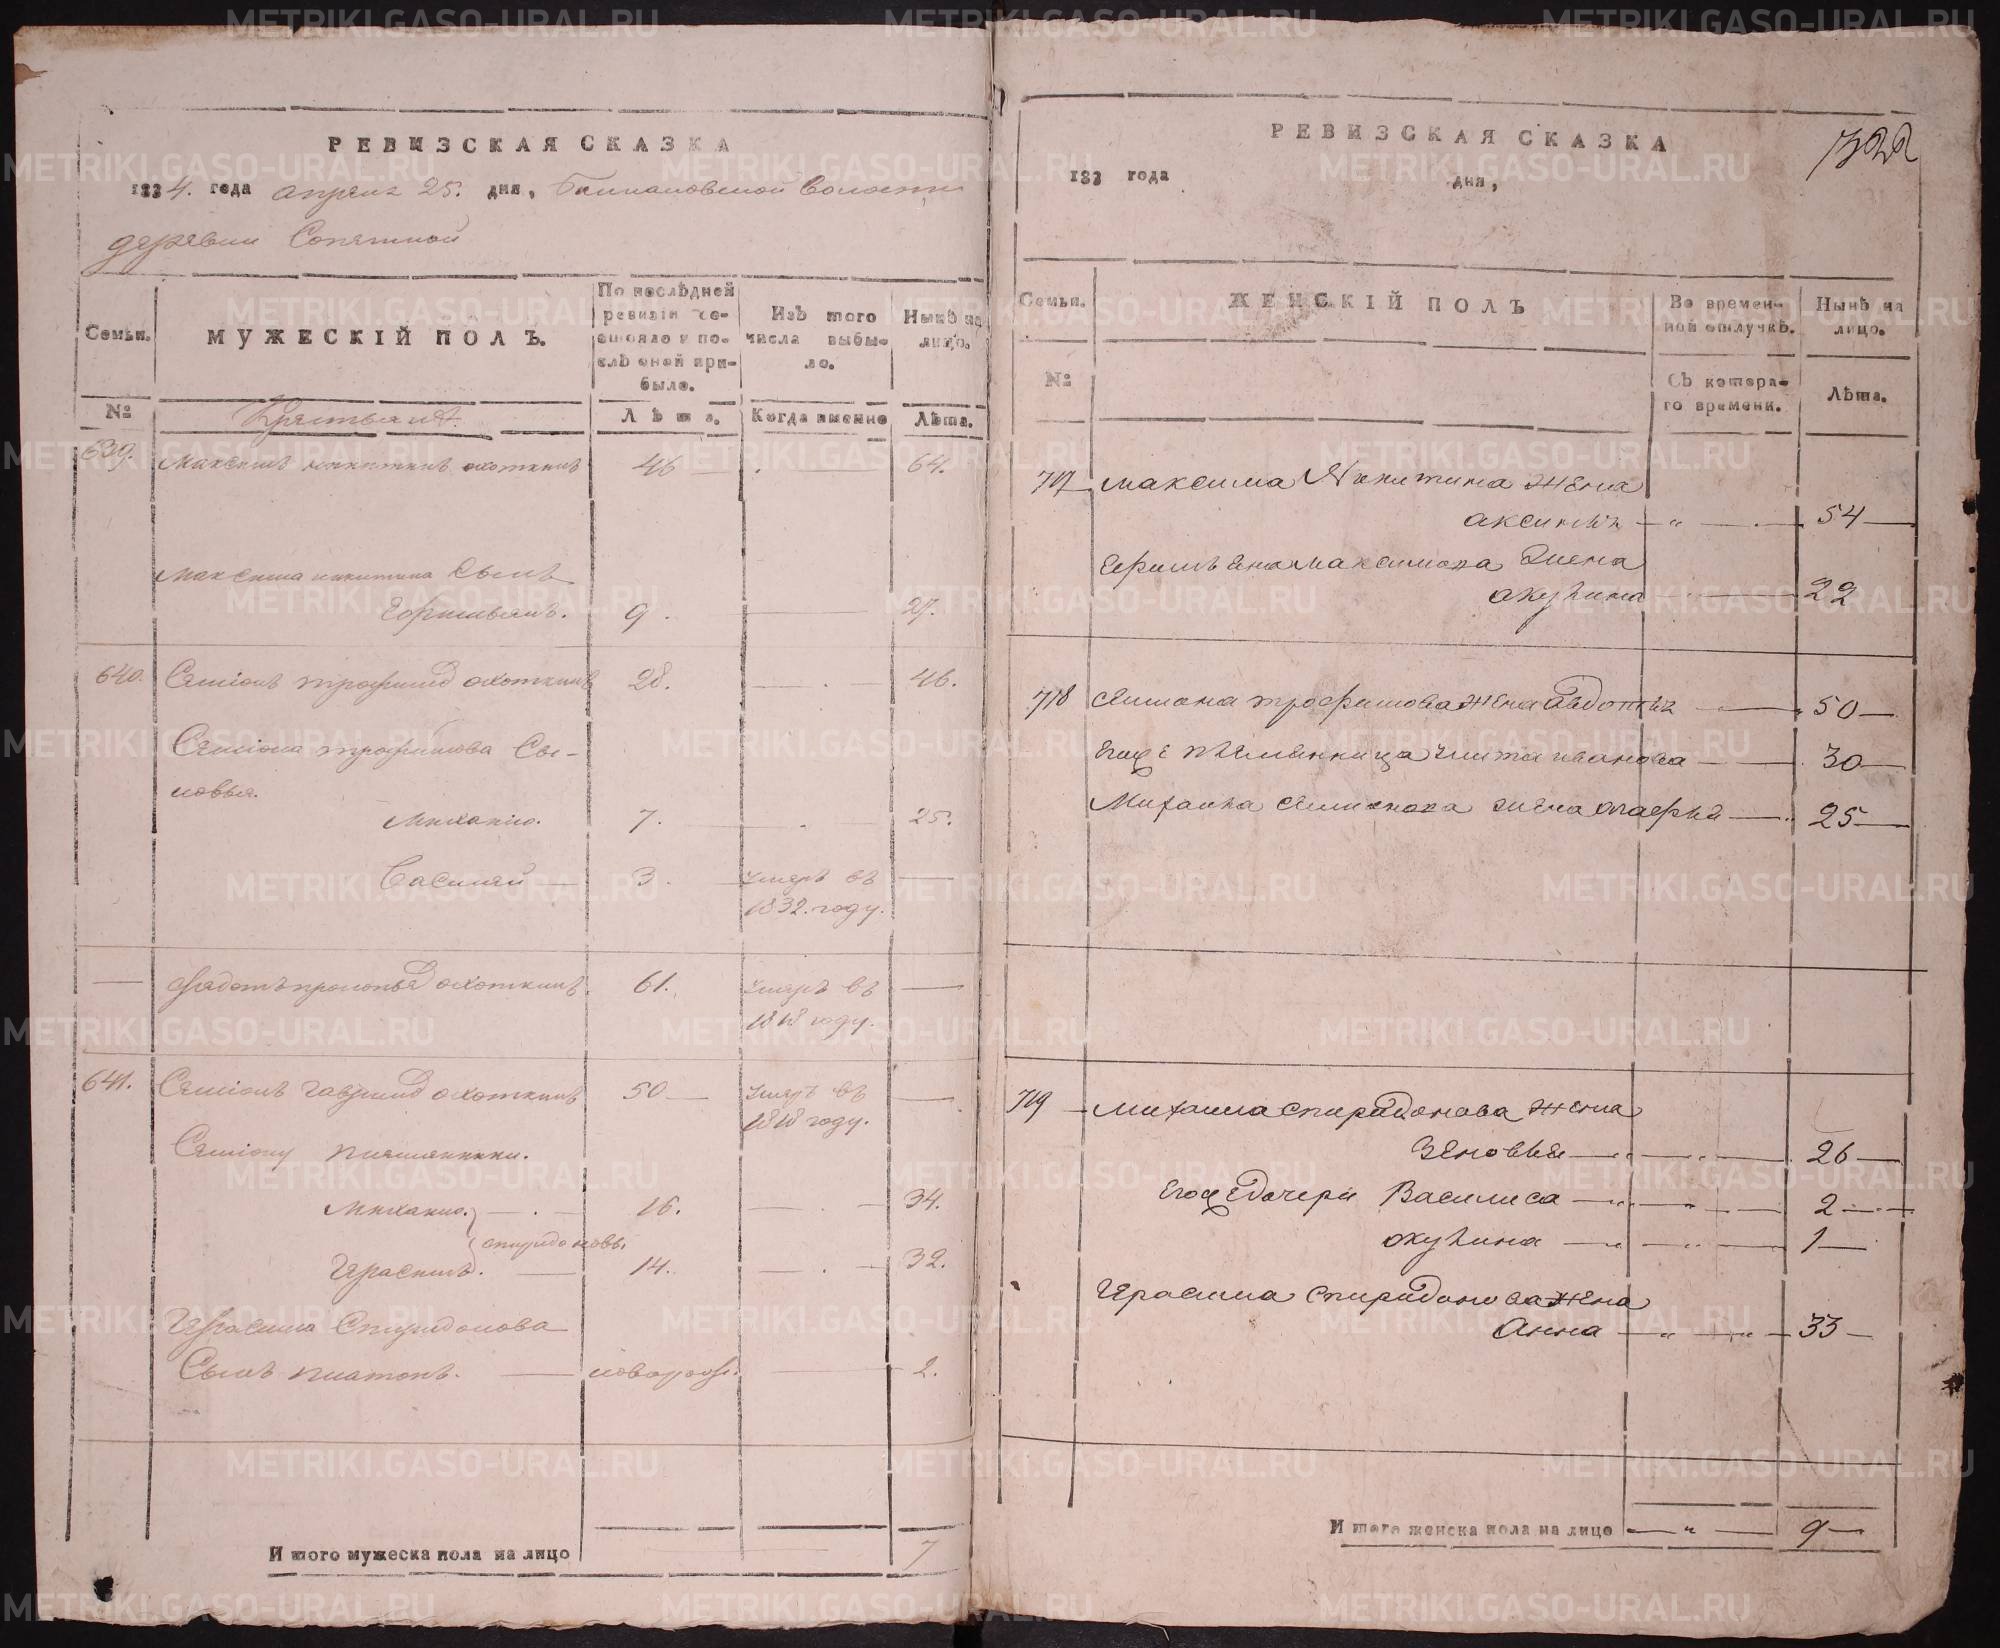 РЕВИЗСКАЯ СКАЗКА
1834. года апреля 25. дня, волости
деревни
Семьи.
МУЖЕСКІЙ ПОЛЪ.
По последней ревизіи состояло и после оной прибыло.
Изъ того числа выбыло.
Нынѣ на лицо.
№
Крестьяне.
Лѣта.
Когда именно
Лѣта.
639. Максимъ никитинъ охоткинъ 46 — . — 64.
Максима никитина Сынъ
9. — 27.
640. Семіонъ трофимовъ охоткинъ 28. — . — 46.
Семіона трофимова Сы-
новья.
Михаило. 7. — . — 25.
Василей — 3. умеръ въ —
1832. году.
— Федотъ прокопьевъ охоткинъ. 61. умеръ въ —
1818 году.
641. Семіонъ гавриловъ охоткинъ 50 — умеръ въ —
1818 году.
Семіону племянники.
Михаило. — . — 16. — . — 34.
спиридоновы.
Герасимъ. — 14. — . — 32.
Герасима Спиридонова
Сынъ платонъ. — новорож. — 2.
И того мужеска пола на лицо 7
РЕВИЗСКАЯ СКАЗКА
183 года дня,
Семьи.
ЖЕНСКІЙ ПОЛЪ
Во временной отлучкѣ.
Нынѣ на лицо.
№
Съ котораго времени.
Лѣта.
717 Максима Никитина жена
аксинья — „ — . — 54 —
максимова жена
акулина — 22
718 Семиона трофимова жена авдотья — 50 —
Еще племянница иванова — 30 —
Михаила Семионова жена — 25 —
719 — Михаила спиридонова жена
Зеновья — „ — „ — 26 —
Его же дочери Василиса — „ — „ — 2 —
окулина — „ — „ — 1 —
Герасима спиридонова жена
Анна — „ — „ — 33 —
И того женска пола на лицо — „ — 9 —
METRIKI.GASO-URAL.RU